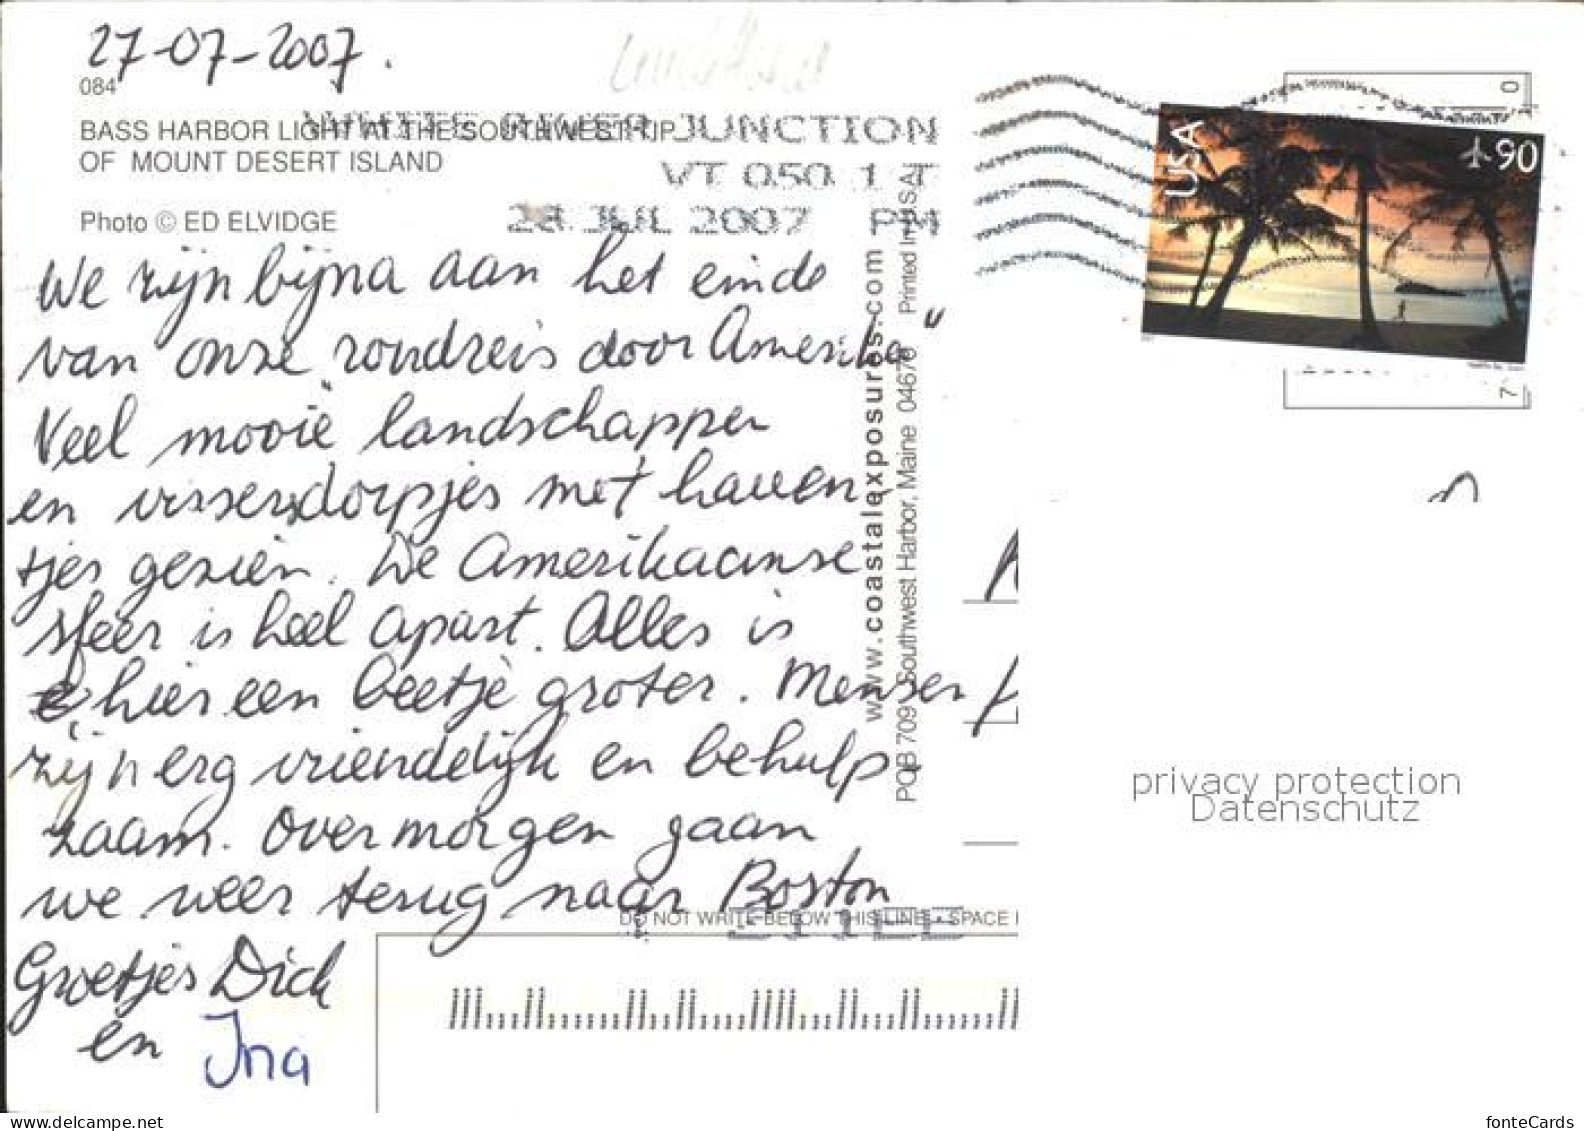 27-07-2007.
084
BASS HARBOR LIGHT AT THE SOUTHWEST TIP
OF MOUNT DESERT ISLAND
Photo © ED ELVIDGE
WHITE RIVER JUNCTION
VT 050 1 T
28 JUL 2007 PM
USA
90
We zijn bijna aan het einde
van onze "rondreis door Amerika"
Veel mooie landschappen
en vissersdorpjes met haven
tjes gezien. De Amerikaanse
sfeer is heel apart. Alles is
hier een beetje groter. Mensen
zijn erg vriendelijk en behulp
zaam. Overmorgen gaan
we weer terug naar Boston
Groetjes Dick
en Ina
www.coastalexposures.com
POB 709 Southwest Harbor, Maine 04679 Printed In USA
0
7
privacy protection
Datenschutz
DO NOT WRITE BELOW THIS LINE - SPACE
fonteCards